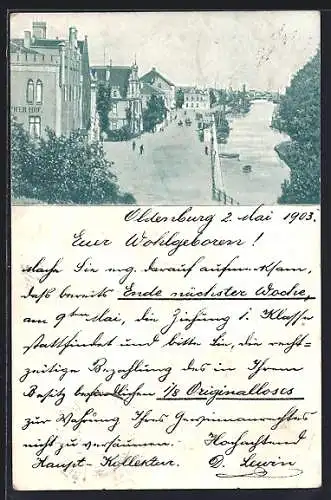 HER HOF.
Oldenburg 2 Mai 1903.
Euer Wohlgeboren!
mache Sie erg. darauf aufmerksam,
daß bereits Ende nächster Woche,
am 9ten Mai, die Ziehung 1. Klasse
stattfindet und bitte Sie, die recht-
zeitige Bezahlung des in Ihrem
Besitz befindlichen 1/8 Originalloses
zur Wahrung Ihres Gewinnanrechtes
nicht zu versäumen. Hochachtend
Haupt-Kollektur. D. Lewin